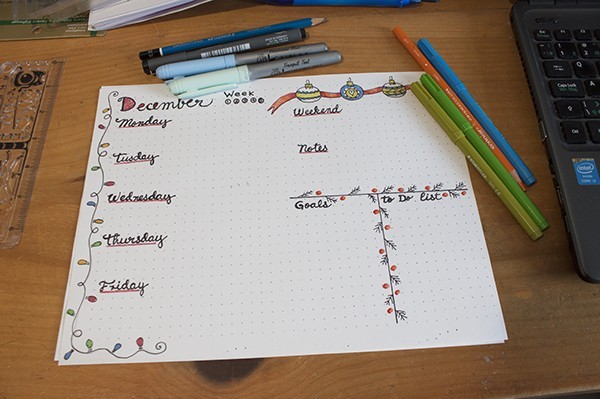 December
Week
Monday
Tuesday
Wednesday
Thursday
Friday
Weekend
Notes
Goals
to Do list
Caps Lock
intel